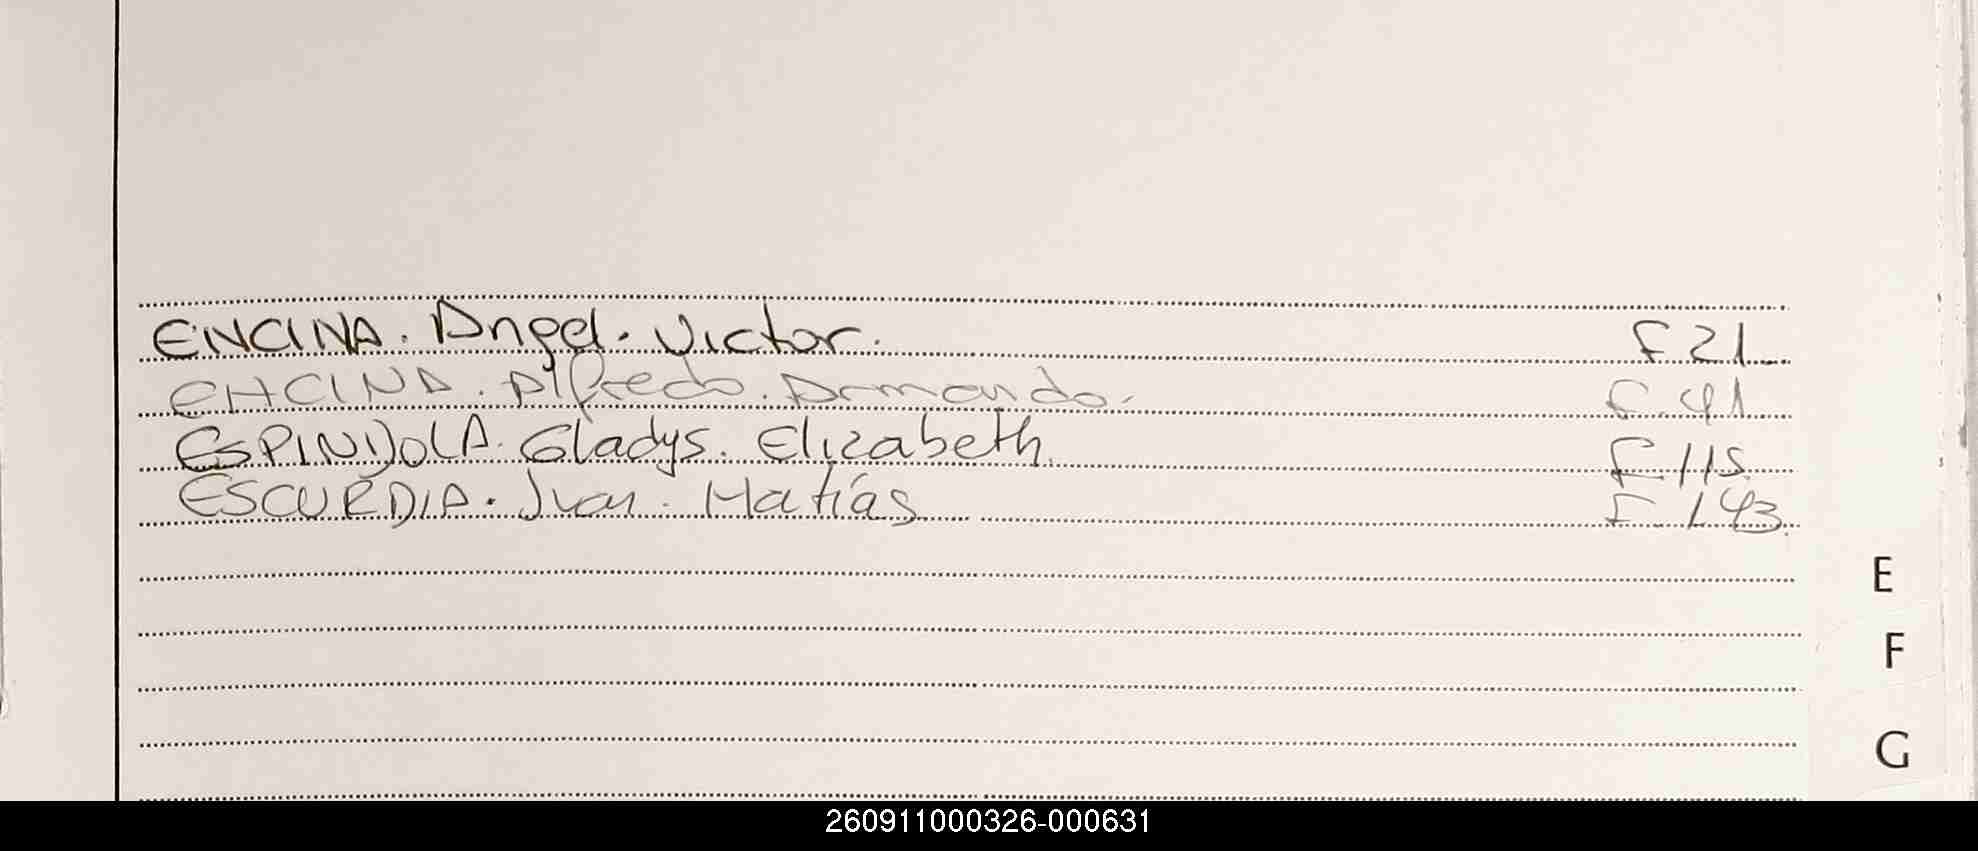 ENCINA. Angel. Victor. F 21
ENCINA. Alfredo. Armando. F. 41
ESPINDOLA. Gladys. Elizabeth. F 115
ESCURDIA. Juan. Matías F 143
E
F
G
260911000326-000631